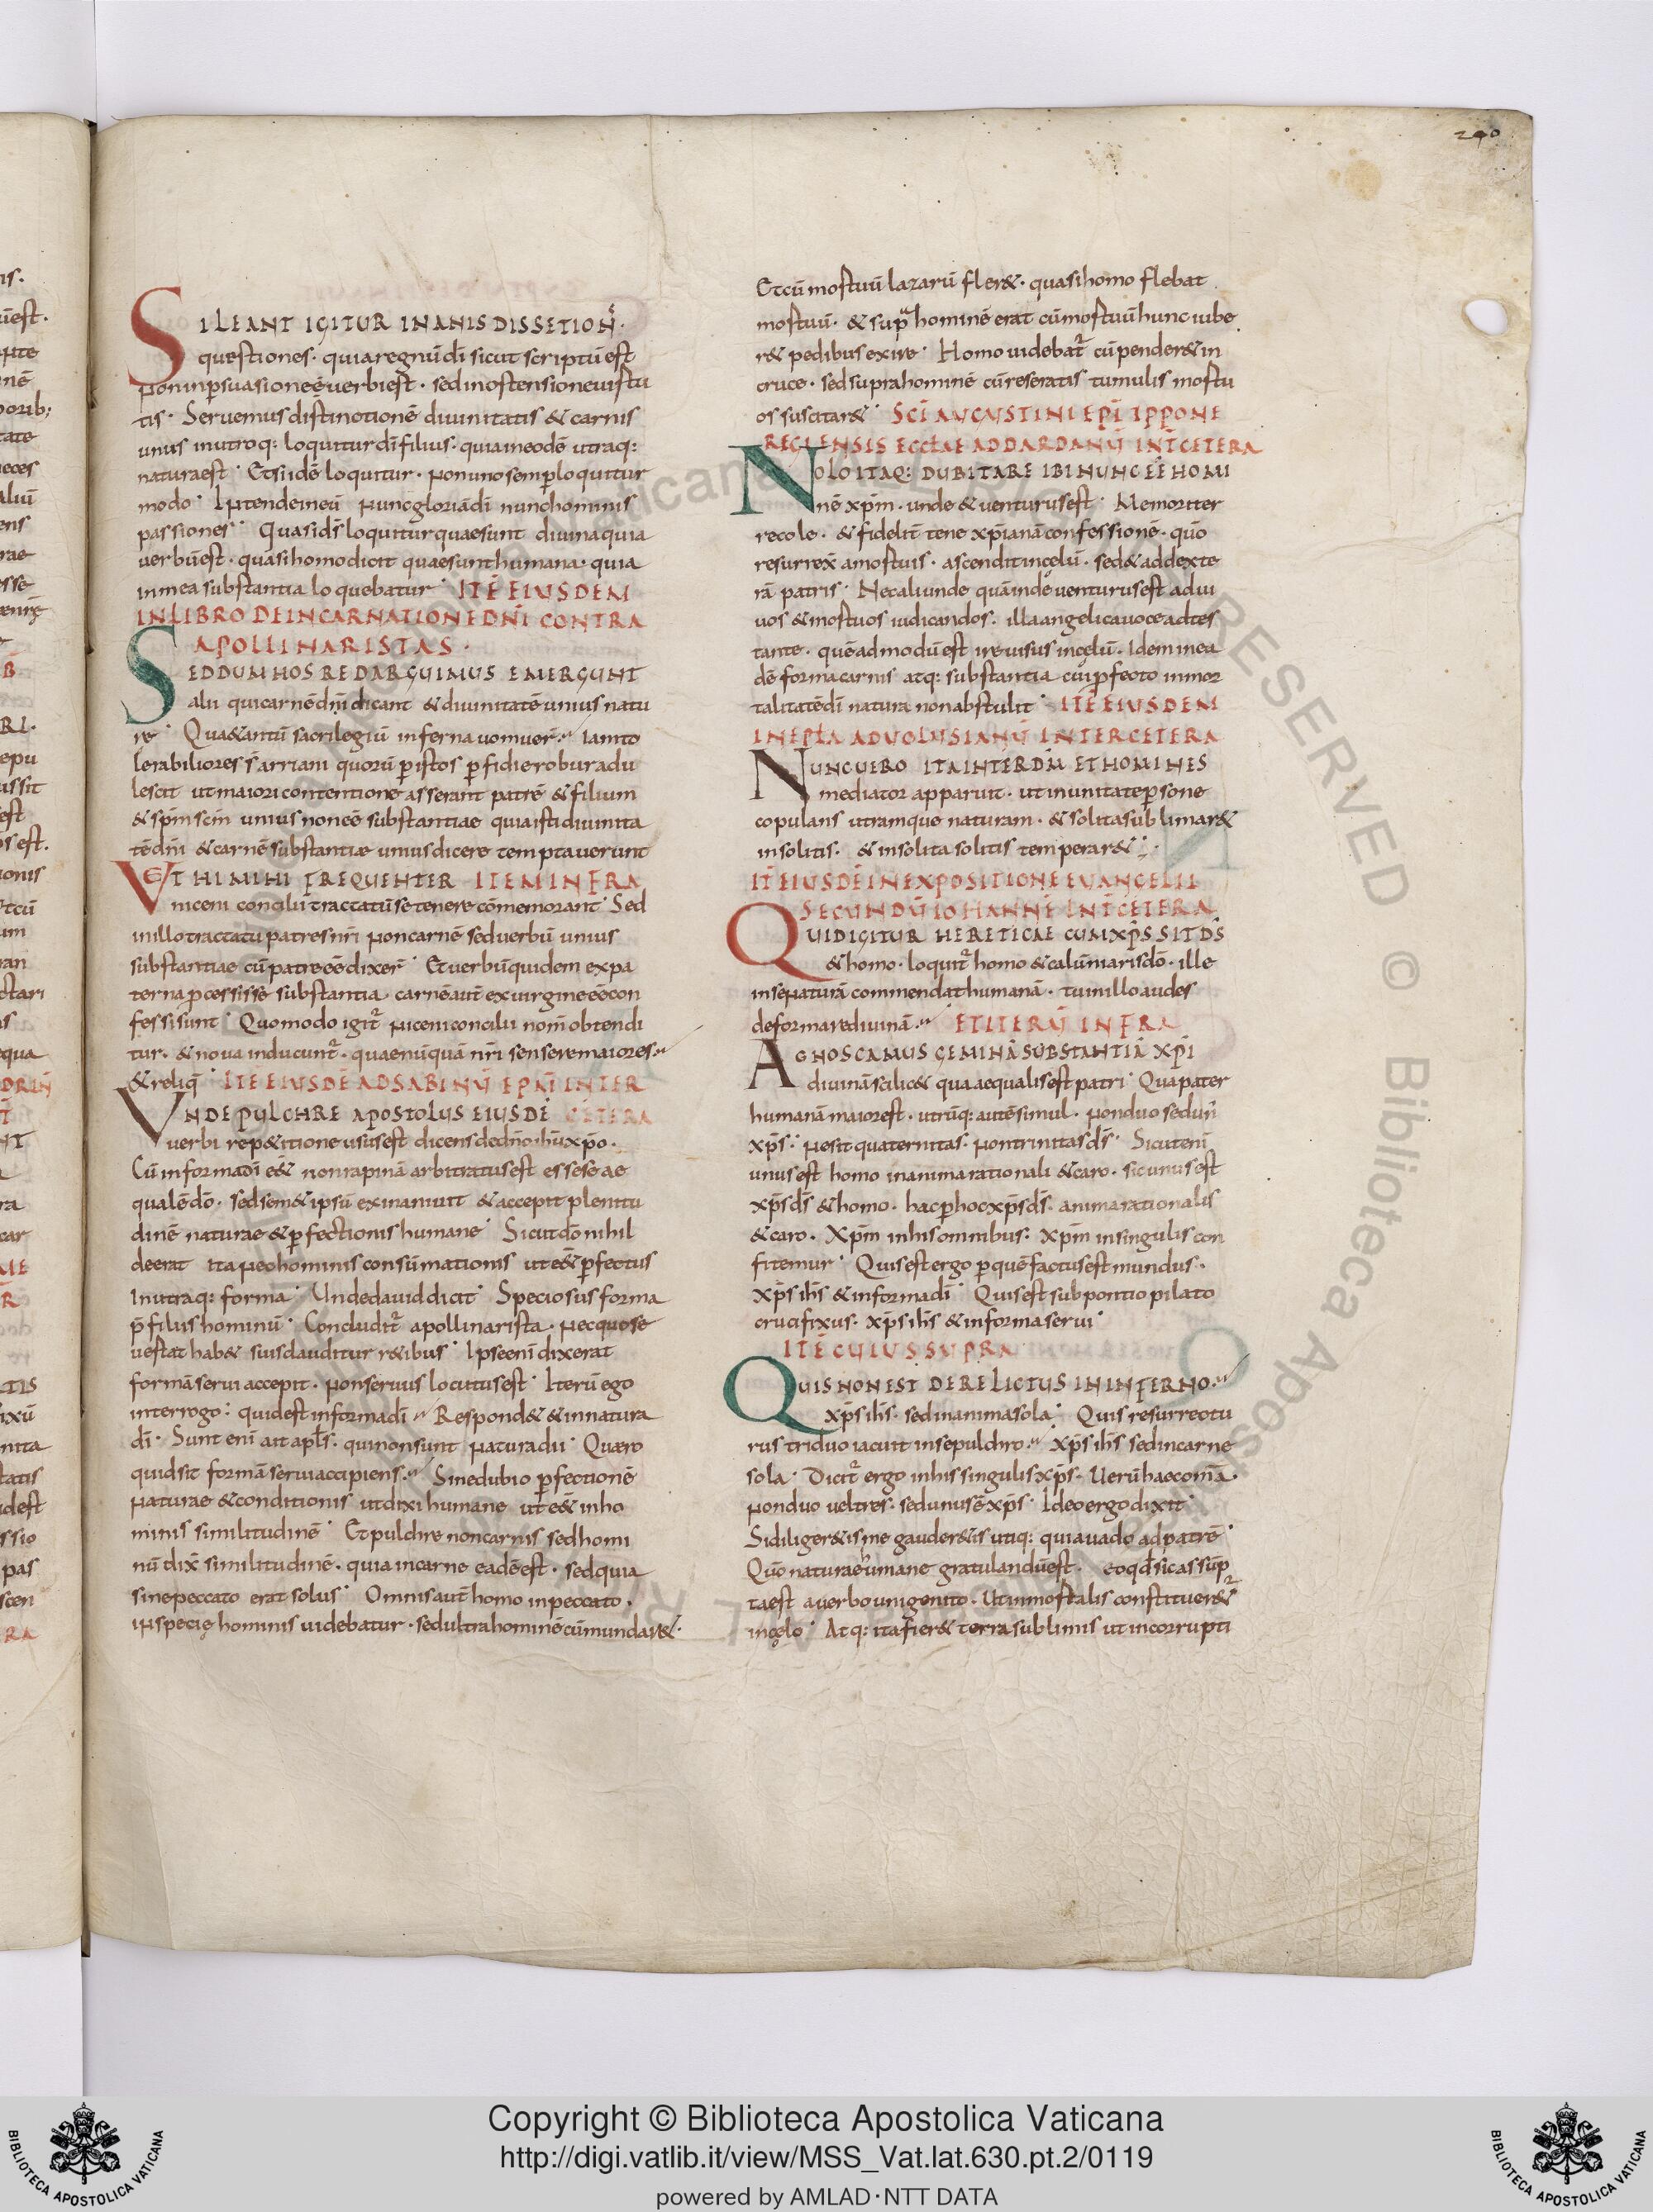 240
SILEANT IGITUR INANIS DISSETION̄·
questiones· quia regnū dī sicut scriptū est
non inpsuasioneē verbi est· sed in ostensione virtu
tis· Servemus distinctionē divinitatis & carnis
unus in utroq: loquitur dī filius· quia in eodē utraq:
natura est· Etsi idē loquitur· non uno semp loquitur
modo· Intende in eū nunc gloriā dī nunc hominis
passiones· Quasi ds̄ loquitur quae sunt divina quia
verbū est· quasi homo dicit quae sunt humana· quia
in mea substantia loquebatur· ITĒ EIUSDEM
IN LIBRO DE INCARNATIONE DN̄I CONTRA
APOLLINARISTAS·
SED DUM HOS REDARGUIMUS EMERGUNT
alii qui carnē dn̄i dicant & divinitatē unius natu
re· Qua& antū sacrilegiū inferna vomuer̄· iam to
lerabiliores s̄ arriani quorū p istos pfidie robur adu
lescit ut maiori contentione asserant patrē & filium
& sp̄m sc̄m unius non eē substantiae quia isti divinita
tē dn̄i & carnē substantiae unius dicere temptaverunt
ET HI MIHI FREQUENTER ITEM INFRA
niceni concilii tractatū se tenere cōmemorant· Sed
in illo tractatu patres nr̄i non carnē sed verbū unius
substantiae cū patre eē dixer̄· Et verbū quidem ex pa
terna pcessisse substantia· carnē aut̄ ex virgine eē con
fessi sunt· Quomodo igit̄ niceni concilii nom̄ obtendi
tur· & nova inducunt̄· quae nūquā nr̄i sensere maiores·
& reliq̄ ITĒ EIUSDĒ AD SABINŪ EPM̄ INTER
VNDE PULCHRE APOSTOLUS EIUSDĒ CETERA
verbi rep&itione usus est dicens de dn̄o ihū xp̄o·
Cū in forma dī e&̄ non rapinā arbitratus est esse se ae
qualē dō· sed sem&ipsū exinanivit & accepit plenitu
dinē naturae & pfectionis humane· Sicut dō nihil
deerat ita nec hominis consūmationis ut e&̄ pfectus
in utraq: forma· Unde david dicit· Speciosus forma
p̄ filiis hominū· Concludit̄ apollinarista· nec quo se
vertat hab& suis clauditur r&ibus· Ipse enī dixerat
formā servi accepit· non servus locutus est· Iterū ego
interrogo: quid est in forma dī Respond& & in natura
dī· Sunt enī ait apl̄s· qui non sunt natura dii· Quaero
quid sit formā servi accipiens· Sine dubio pfectionē
naturae & conditionis ut dixi humane ut e&̄ in ho
minis similitudinē· Et pulchre non carnis sed homi
nū dix̄ similitudinē· quia in carne eadē est· sed quia
sine peccato erat solus· Omnis aut̄ homo in peccato·
in specie hominis videbatur· sed ultra hominē cū mundar&·
Et cū mortuū lazarū fler&· quasi homo flebat
mortuū· & supra hominē erat cū mortuū hunc iube
r& pedibus exire· Homo videbat̄ cū pender& in
cruce· sed supra hominē cū reseratis tumulis mortu
os suscitar&· SC̄I AUGUSTINI EPĪ IPPONE
REGIENSIS ECCL̄AE AD DARDANŪ INT̄ CETERA
NOLO ITAQ: DUBITARE IBI NUNC EĒ HOMI
nē xp̄m· unde & venturus est· Memoriter
recole· & fideliter tene xp̄ianā confessionē· qūo
resurrex̄ a mortuis· ascendit in cęlū· sed& ad dexte
rā patris· Nec aliunde quā inde venturus est ad vi
vos & mortuos iudicandos· illa angelica voce adtes
tante· quē ad modū est ire visus in cęlū· Idem in ea
dē forma carnis atq: substantia cui pfecto inmor
talitatē dī natura non abstulit· ITĒ EIUSDEM
IN EPL̄A AD VOLUSIANŪ INTER CETERA
NUNC UERO ITA INTER DM̄ ET HOMINES
mediator apparuit· ut in unitate psone
copulans utramque naturam· & solita sublimar&
insolitis· & insolita solitis temperar&·
IT̄ EIUSDĒ IN EXPOSITIONE EVANGELII
SECUNDŪ IOHANNĒ INT̄ CETERA
QUID IGITUR HERETICAE CUM XP̄S SIT DS̄
& homo· loquit̄ homo & calūniaris dō· ille
in se naturā commendat humanā· tu in illo audes
deformare divinā· ET ITERŪ INFRA
AGNOSCAMUS GEMINĀ SUBSTANTIĀ XP̄I
divinā scilic& qua aequalis est patri· Qua pater
humanā maior est· utrūq: autē simul· non duo sed un̄
xp̄s· ne sit quaternitas· non trinitas ds̄· Sicut enī
unus est homo in anima rationali & caro· sic unus est
xp̄s ds̄ & homo· hac p hoc xp̄s ds̄· anima rationalis
& caro· Xp̄m in his omnibus· Xp̄m in singulis con
fitemur· Quis est ergo p quē factus est mundus·
xp̄s ihs̄ & in forma dī· Quis est sub pontio pilato
crucifixus· xp̄s ihs̄ & in forma servi·
ITĒ CUIUS SUPRA
QUIS NON EST DERELICTUS IN INFERNO·
xp̄s ihs̄· sed in anima sola· Quis resurrectu
rus triduo iacuit in sepulchro· Xp̄s ihs̄ sed in carne
sola· Dicit̄ ergo in his singulis xp̄s· Uerū haec om̄a·
non duo vel tres· sed unus ē xp̄s· Ideo ergo dixit·
Si diliger&is me gauder&is utiq: quia vado ad patrē·
Qūo naturae humane gratulandū est· eo qd̄ sic assūp
ta est a verbo unigenito· Ut inmortalis constituer&̄
in cęlo· Atq: ita fier& terra sublimis ut incorrupti
Copyright © Biblioteca Apostolica Vaticana
http://digi.vatlib.it/view/MSS_Vat.lat.630.pt.2/0119
powered by AMLAD·NTT DATA
BIBLIOTECA APOSTOLICA VATICANA
BIBLIOTECA APOSTOLICA VATICANA